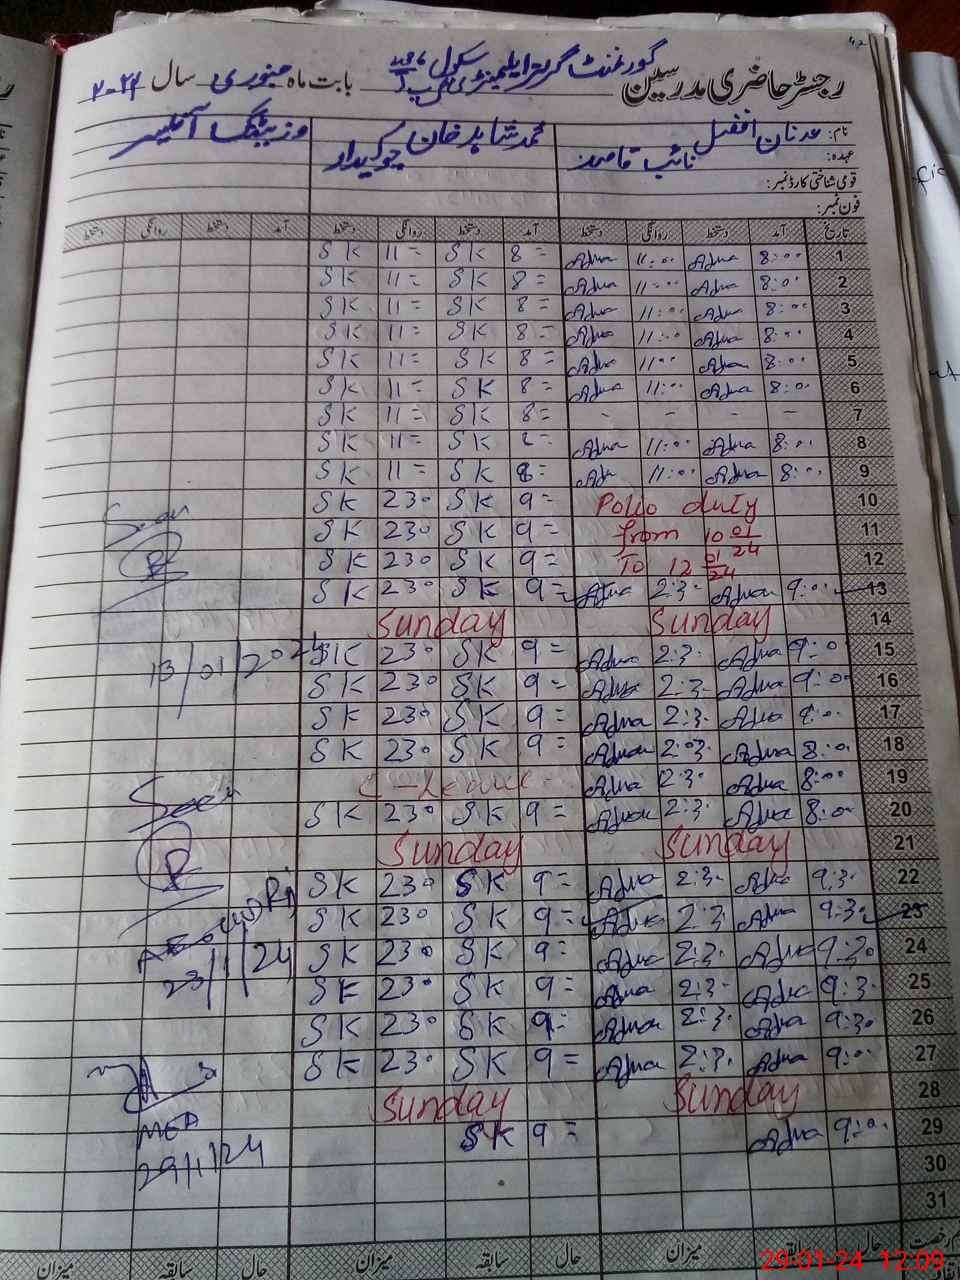 رجسٹر حاضری مدرسین گورنمنٹ گرلز ایلیمنٹری سکول بابت ماہ جنوری سال ۲۰۲۴
نام: عدنان افضل محمد شاہد خان وزیٹنگ آفیسر
عہدہ: نائب قاصد چوکیدار
قومی شناختی کارڈ نمبر:
فون نمبر:
تاریخ آمد دستخط روانگی دستخط آمد دستخط روانگی دستخط آمد دستخط روانگی دستخط
1 8:00 Adna 11:00 Adna 8= SK 11= SK
2 8:00 Adna 11:00 Adna 8= SK 11= SK
3 8:00 Adna 11:00 Adna 8= SK 11= SK
4 8:00 Adna 11:00 Adna 8= SK 11= SK
5 8:00 Adna 11:00 Adna 8= SK 11= SK
6 8:00 Adna 11:00 Adna 8= SK 11= SK
7 - - - - 8= SK 11= SK
8 8:00 Adna 11:00 Adna 8= SK 11= SK
9 8:00 Adna 11:00 Adna 8= SK 11= SK
10 Polio duty 9= SK 230 SK Seen
11 from 10 01/24 9= SK 230 SK
12 To 12 01/24 9= SK 230 SK
13 9:00 Adna 2:30 Adna 9= SK 230 SK
14 Sunday Sunday
15 9:00 Adna 2:30 Adna 9= SK 230 SK 13/01/2024
16 9:00 Adna 2:30 Adna 9= SK 230 SK
17 9:00 Adna 2:30 Adna 9= SK 230 SK
18 8:00 Adna 2:30 Adna 9= SK 230 SK
19 8:00 Adna 2:30 Adna C-Leave Seen
20 8:00 Adna 2:30 Adna 9= SK 230 SK
21 Sunday Sunday
22 9:30 Adna 2:30 Adna 9= SK 230 SK
23 9:30 Adna 2:30 Adna 9= SK 230 SK
24 9:30 Adna 2:30 Adna 9= SK 230 SK 23/1/24
25 9:30 Adna 2:30 Adna 9= SK 230 SK
26 9:30 Adna 2:30 Adna 9= SK 230 SK
27 9:00 Adna 2:30 Adna 9= SK 230 SK
28 Sunday Sunday
29 9:00 Adna 9= SK MEA
30 29/1/24
31
حال سابقہ میزان حال سابقہ میزان حال سابقہ میزان
29-01-24 12:09